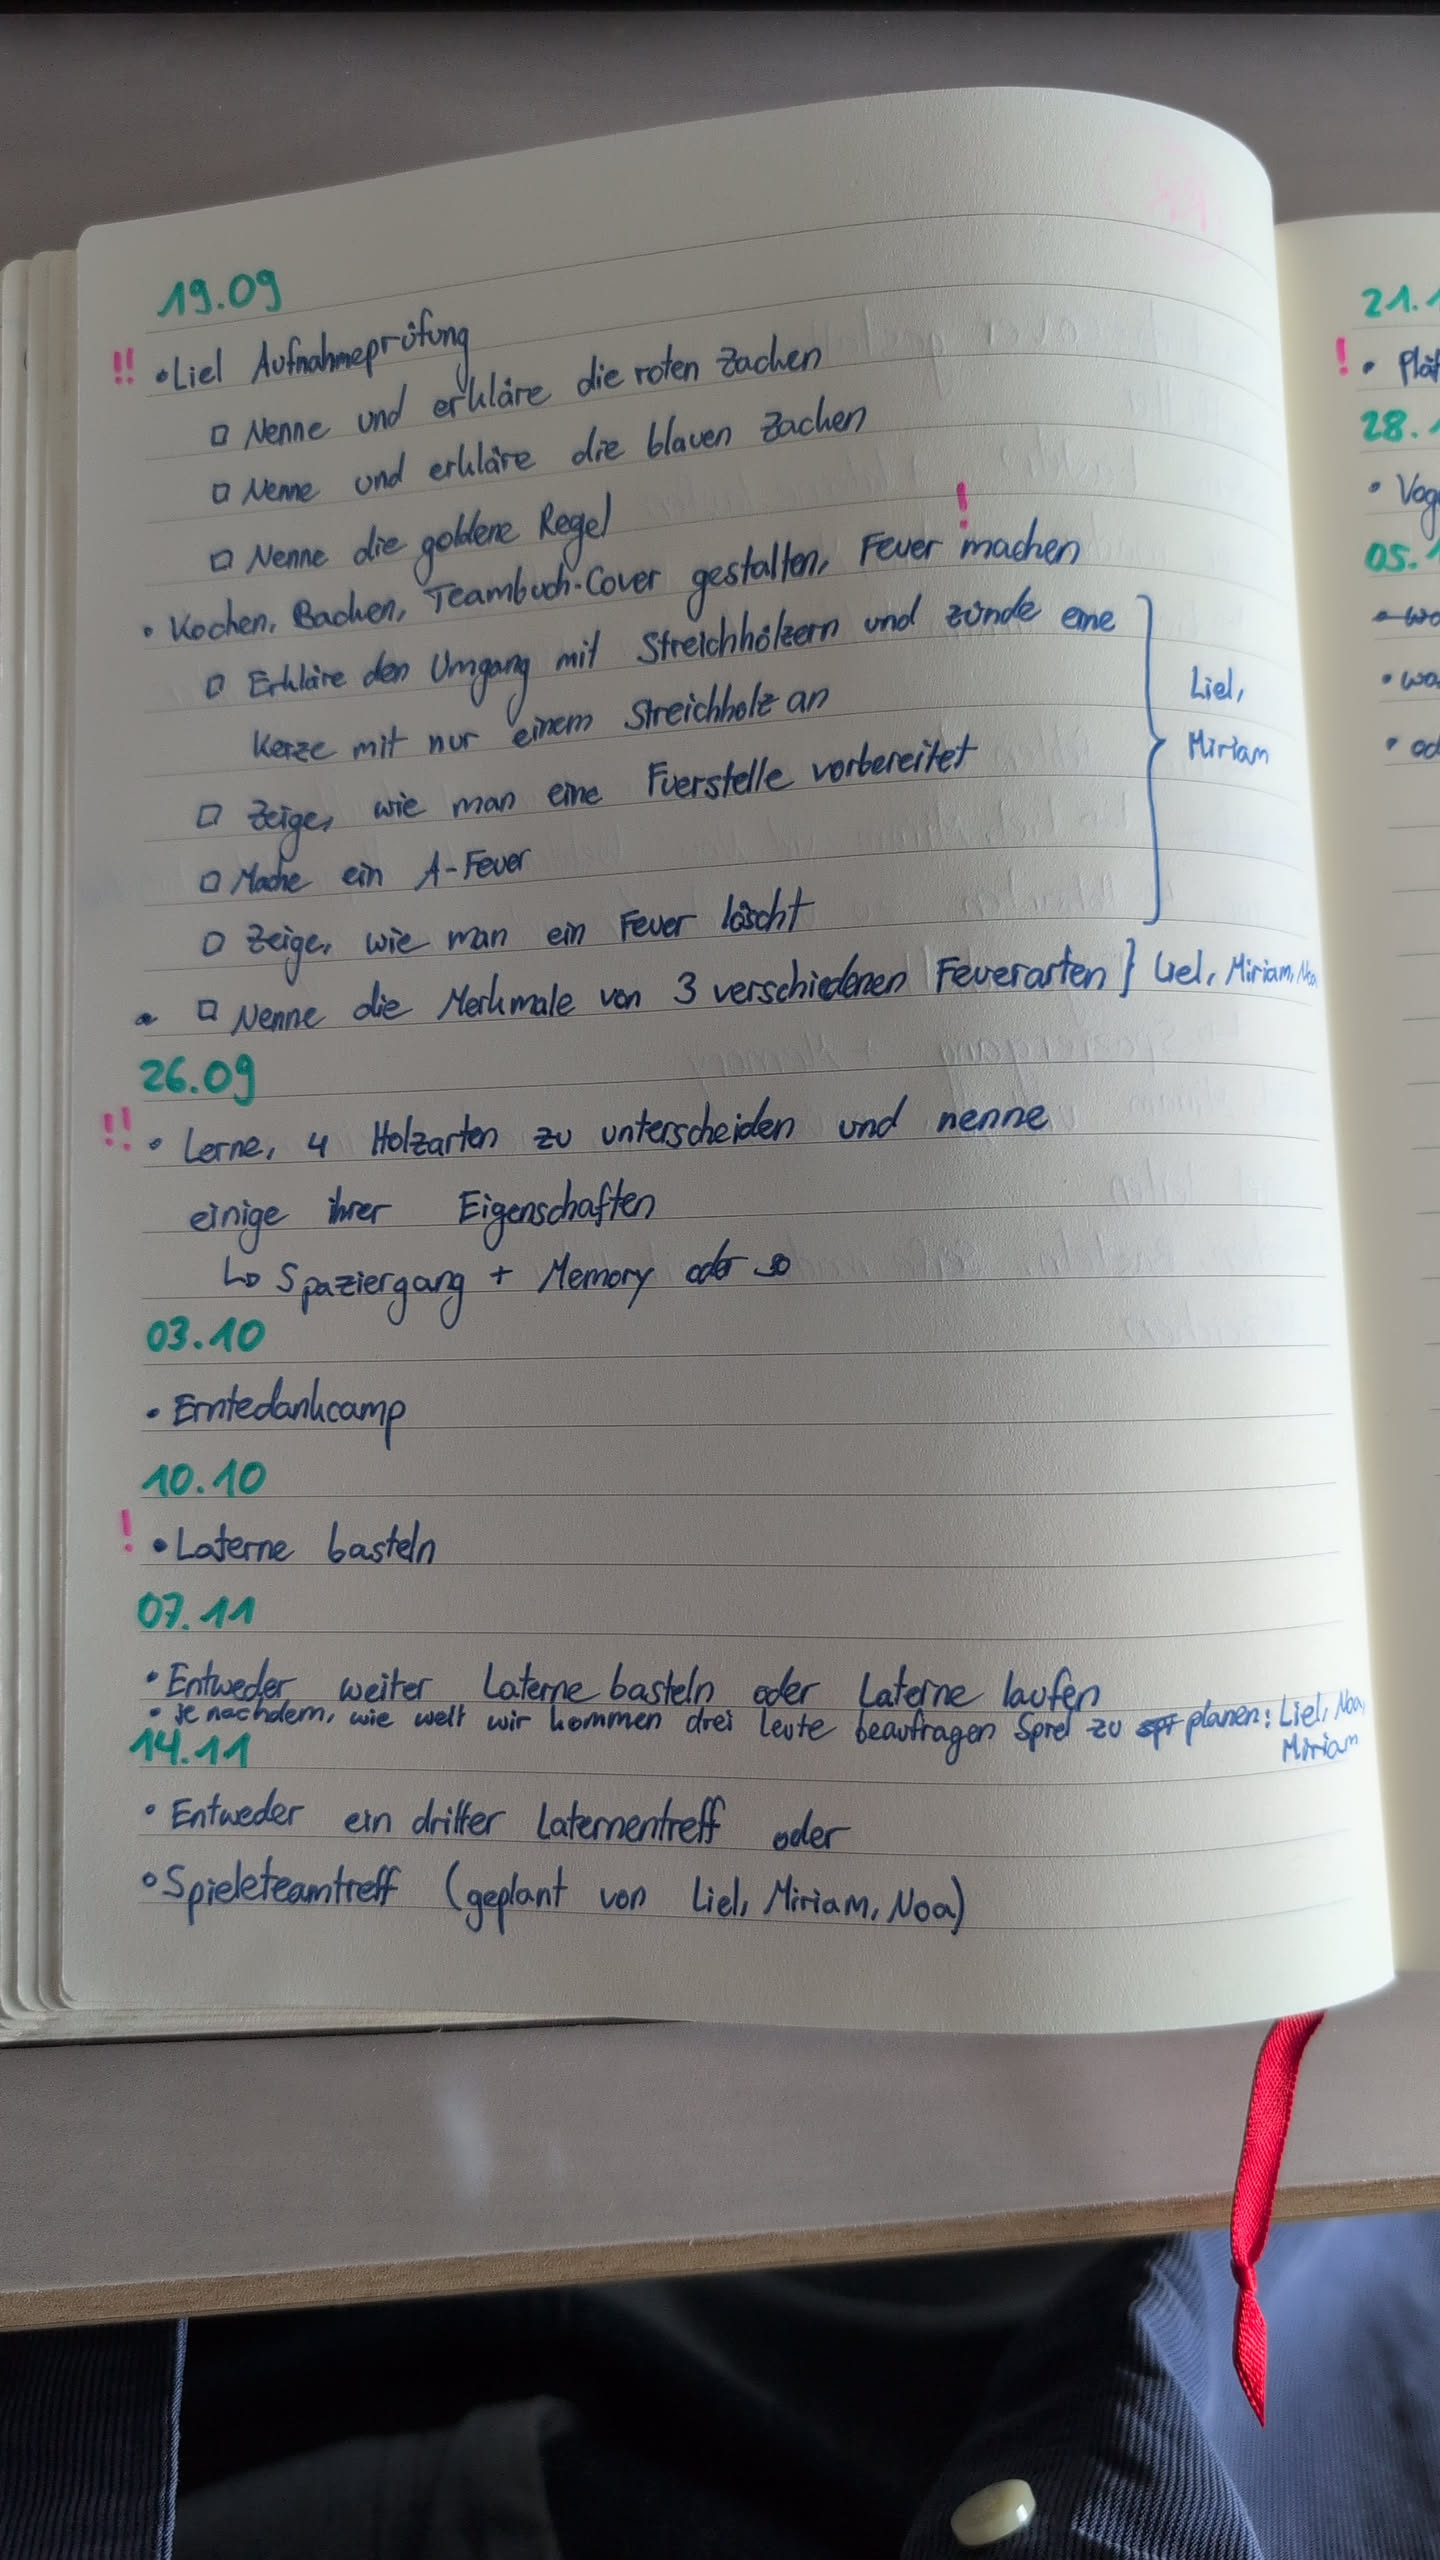 19.09
!! • Liel Aufnahmeprüfung
□ Nenne und erkläre die roten Zachen
□ Nenne und erkläre die blauen Zachen
□ Nenne die goldene Regel
!
• Kochen, Backen, Teambuch-Cover gestalten, Feuer machen
□ Erkläre den Umgang mit Streichhölzern und zünde eine
Kerze mit nur einem Streichholz an
Liel,
Miriam
□ Zeige, wie man eine Fuerstelle vorbereitet
□ Mache ein A-Feuer
□ Zeige, wie man ein Feuer löscht
□ Nenne die Merkmale von 3 verschiedenen Feuerarten } Liel, Miriam, Noa
26.09
!! • Lerne, 4 Holzarten zu unterscheiden und nenne
einige ihrer Eigenschaften
↳ Spaziergang + Memory oder so
03.10
• Erntedankcamp
10.10
! • Laterne basteln
07.11
• Entweder weiter Laterne basteln oder Laterne laufen
• je nachdem, wie weit wir kommen drei Leute beauftragen Spiel zu planen: Liel, Noa,
Miriam
14.11
• Entweder ein dritter Laternentreff oder
• Spieleteamtreff (geplant von Liel, Miriam, Noa)
21.
!
28.
05.